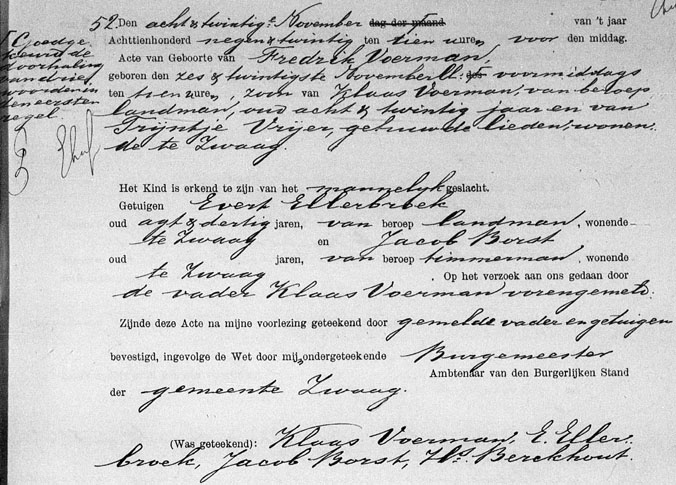 52 Den acht & twintigst. November dag der maand van 't jaar
Achttienhonderd negen & twintig ten tien ure, voor den middag.
Acte van Geboorte van Fredrik Voerman,
geboren den zes & twintigste November ll. des voormiddags
ten tien ure, zoon van Klaas Voerman, van beroep
landman, oud acht & twintig jaar en van
Trijntje Vrijer, gehuwde lieden, wonen-
de te Zwaag.
Goedge-
keurd de
doorhaling
van drie
woorden in
den eersten
regel.
Het Kind is erkend te zijn van het mannelyk geslacht.
Getuigen Evert Ellerbroek
oud agt & dertig jaren, van beroep landman, wonende
te Zwaag en Jacob Borst
oud jaren, van beroep timmerman, wonende
te Zwaag. Op het verzoek aan ons gedaan door
de vader Klaas Voerman vorengemeld.
Zijnde deze Acte na mijne voorlezing geteekend door gemelde vader en getuigen
bevestigd, ingevolge de Wet door mij, ondergeteekende Burgemeester
Ambtenaar van den Burgerlijken Stand
der gemeente Zwaag.
(Was geteekend): Klaas Voerman, E. Eller-
broek, Jacob Borst, Hs. Berckhout.